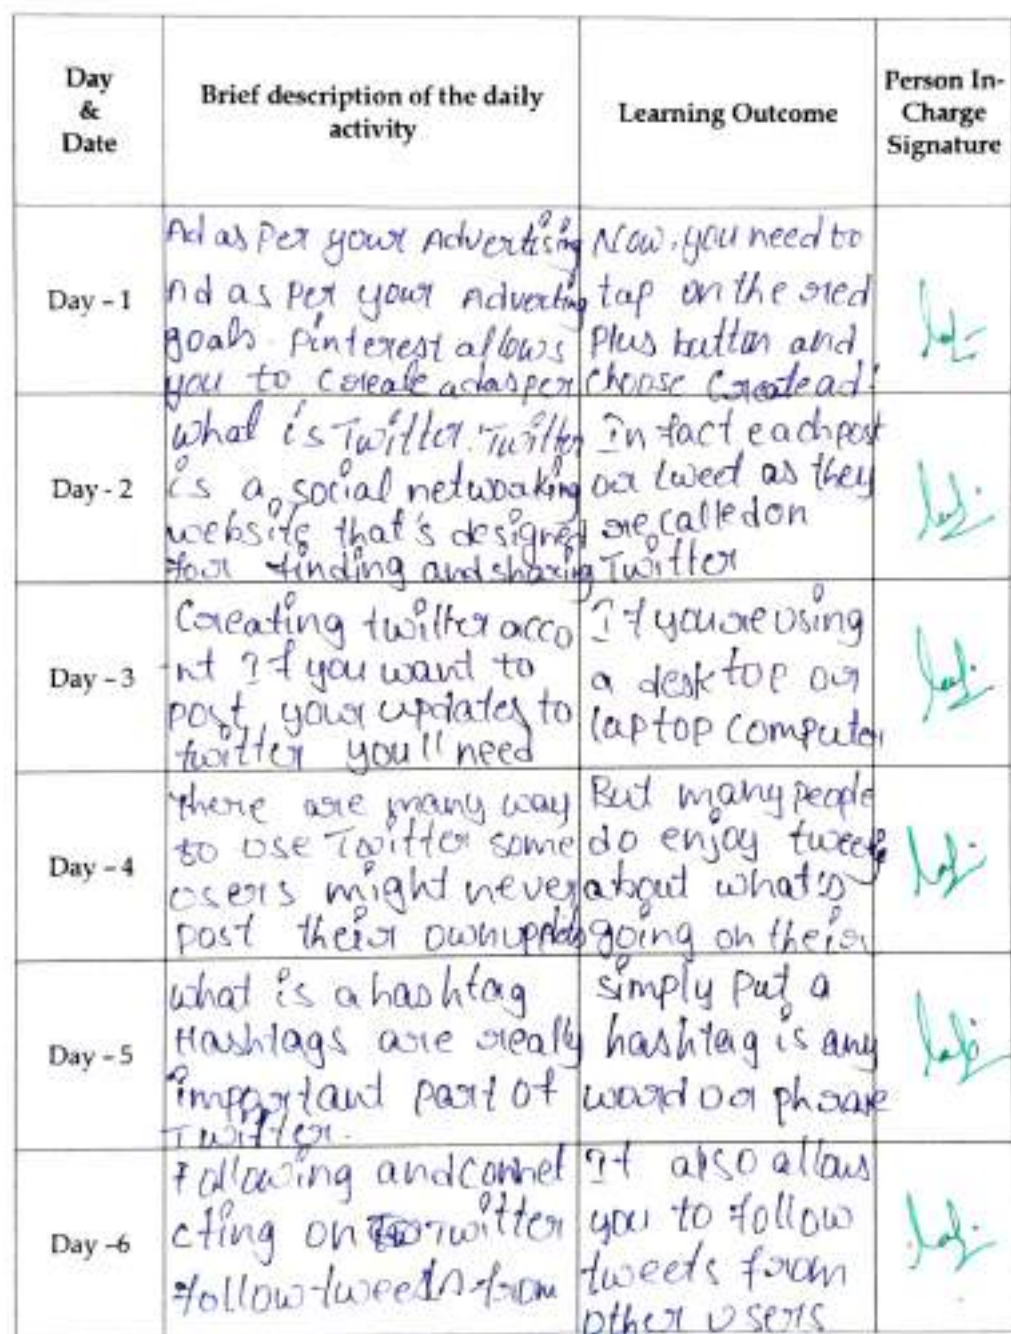 Day
&
Date
Brief description of the daily
activity
Learning Outcome
Person In-
Charge
Signature
Day - 1
Ad as Per your Advertising
Ad as per your Adverting
goals. Pinterest allows
you to create ad as per
Now, you need to
tap on the red
Plus button and
choose Create ad!
Day - 2
what is Twitter. Twitter
is a social networking
website that's designed
for finding and sharing
In fact each post
or tweet as they
are called on
Twitter
Day - 3
Creating twitter acco
nt If you want to
post your updates to
twitter you'll need
If you are using
a desktop or
laptop computer
Day - 4
there are many way
to use Twitter some
users might never
post their own
But many people
do enjoy
about what's
going on their
Day - 5
what is a hashtag
Hashtags are really
important part of
Twitter.
simply put a
hashtag is any
word or phrase
Day -6
Following and connet
cting on Twitter
follow tweets from
It also allows
you to follow
tweets from
other users